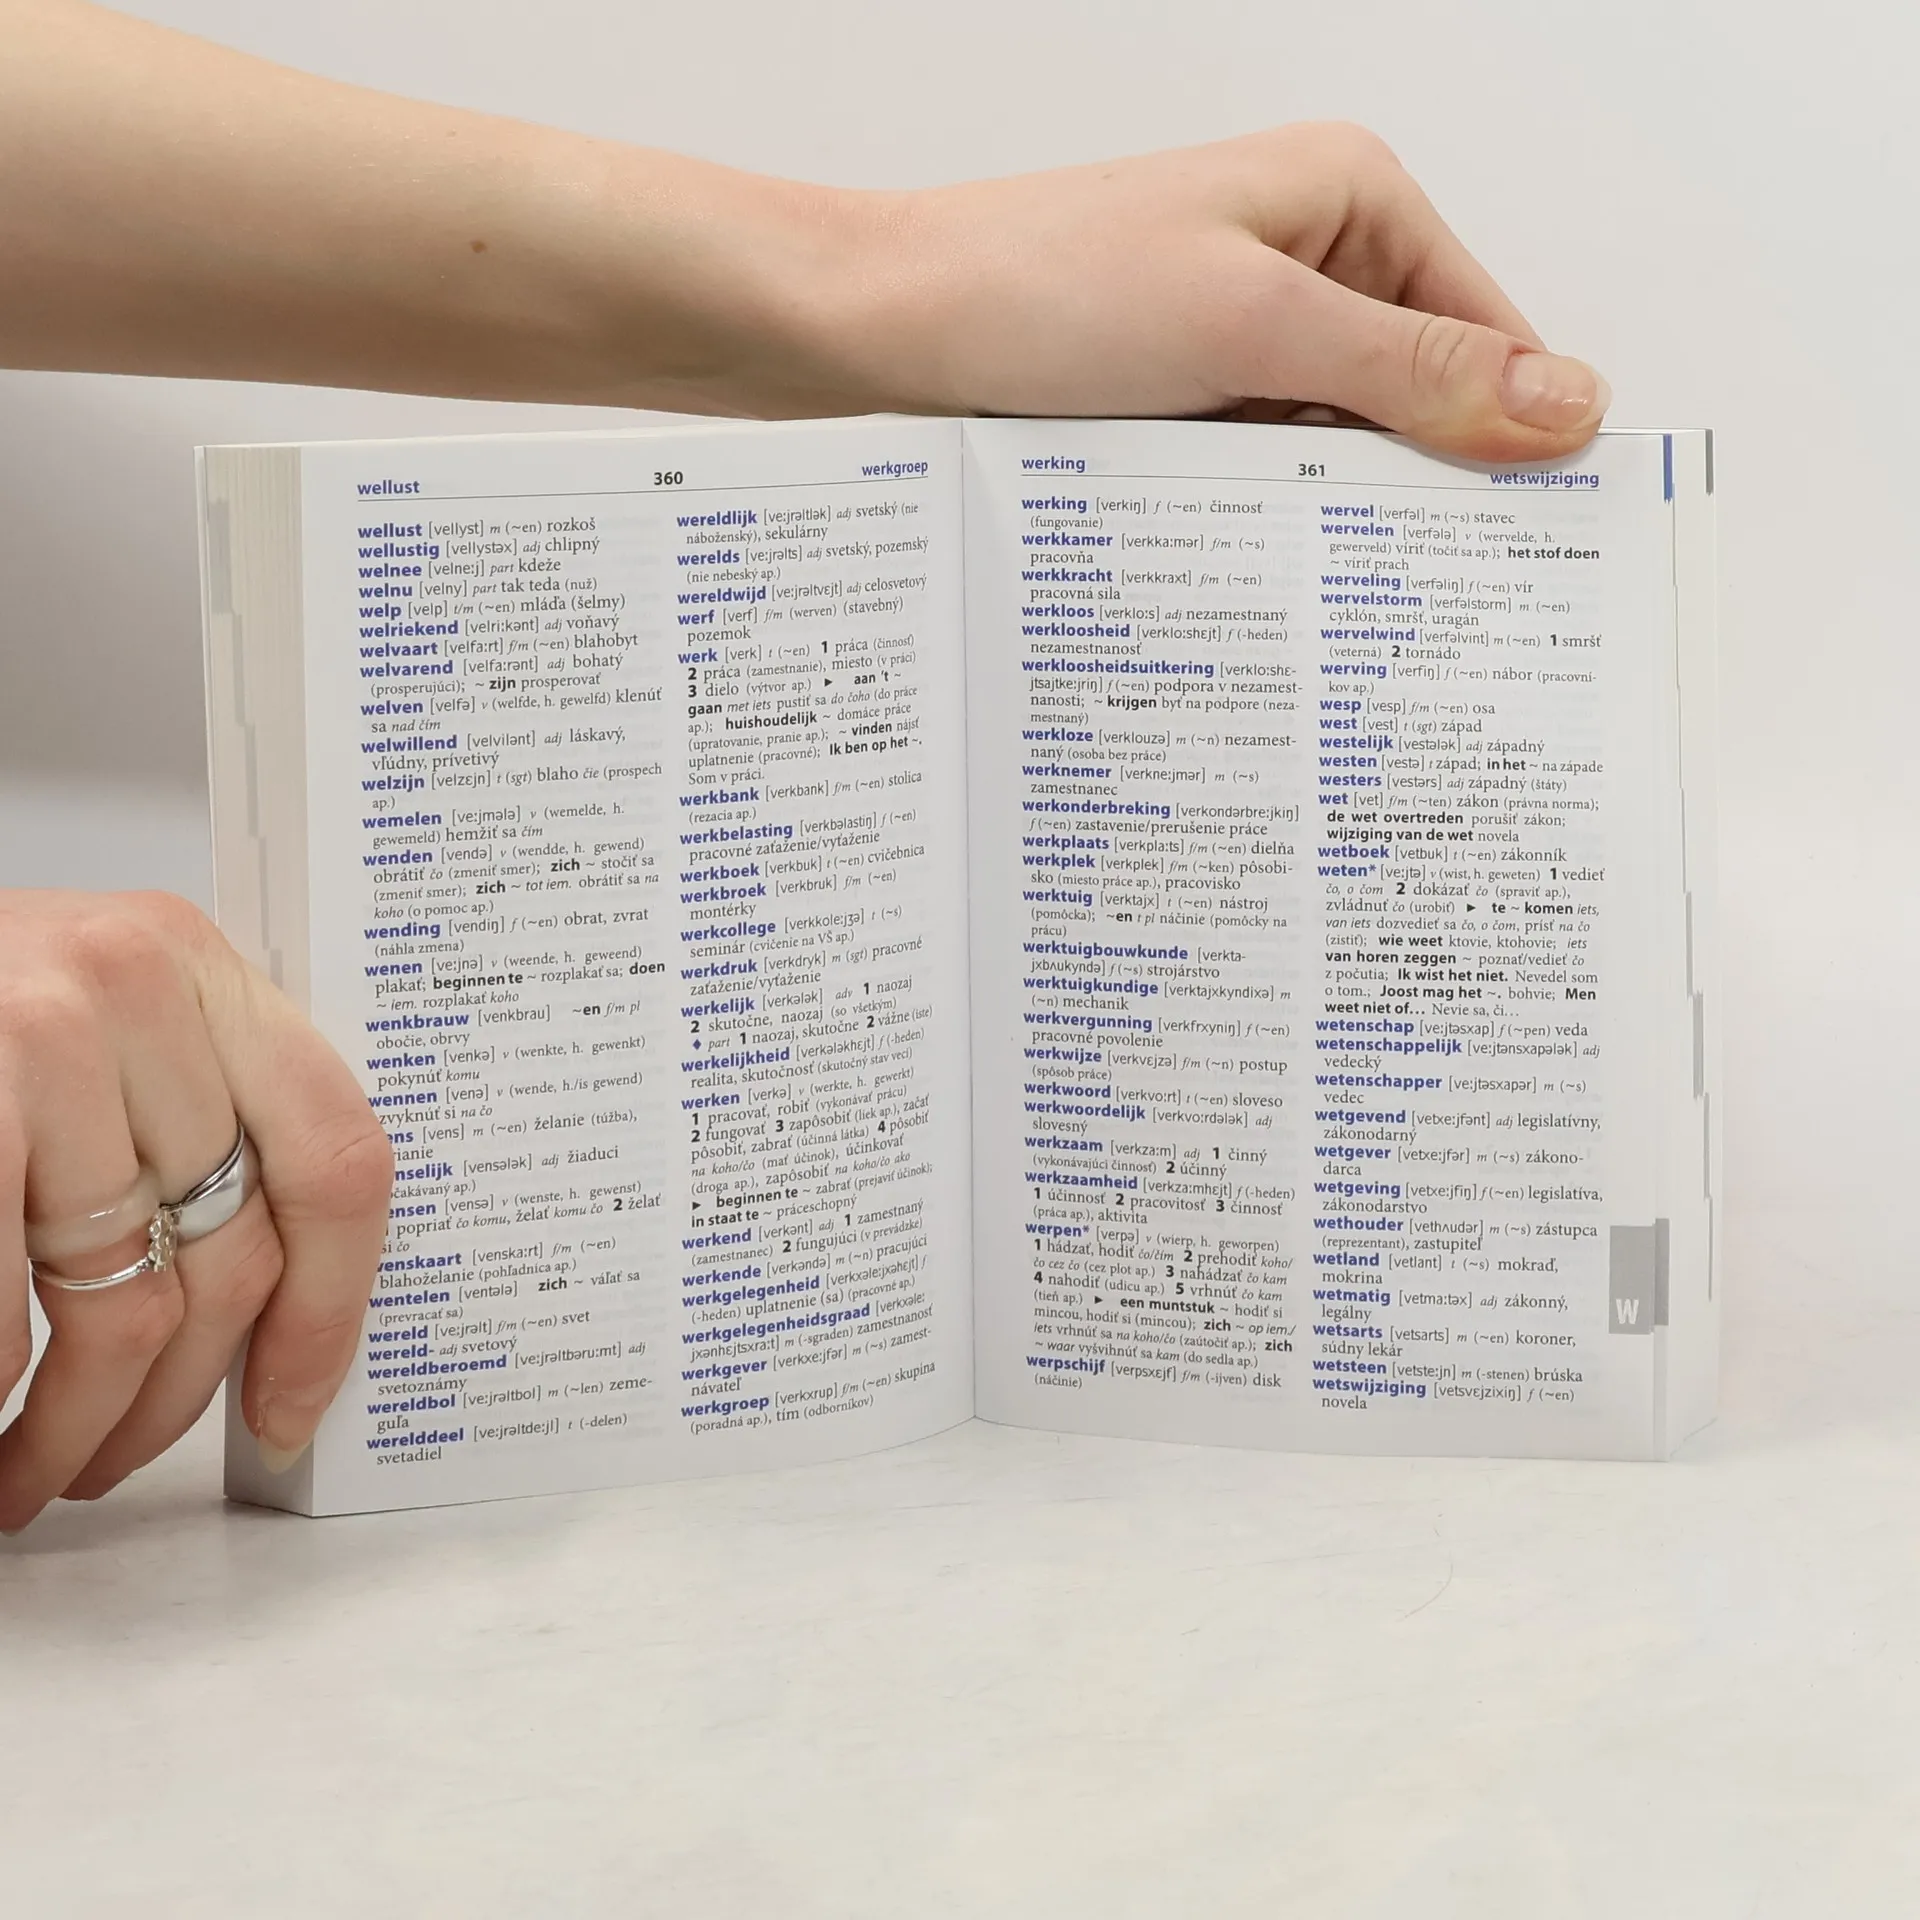 wellust 360 werkgroep
wellust [vellyst] m (~en) rozkoš
wellustig [vellystəx] adj chlipný
welnee [velne:j] part kdeže
welnu [velny] part tak teda (nuž)
welp [velp] t/m (~en) mláďa (šelmy)
welriekend [velri:kənt] adj voňavý
welvaart [velfa:rt] f/m (~en) blahobyt
welvarend [velfa:rənt] adj bohatý
(prosperujúci); ~ zijn prosperovať
welven [velfə] v (welfde, h. gewelfd) klenúť
sa nad čím
welwillend [velvilənt] adj láskavý,
vľúdny, prívetivý
welzijn [velzɛjn] t (sgt) blaho čie (prospech
ap.)
wemelen [ve:jmələ] v (wemelde, h.
gewemeld) hemžiť sa čím
wenden [vendə] v (wendde, h. gewend)
obrátiť čo (zmeniť smer); zich ~ stočiť sa
(zmeniť smer); zich ~ tot iem. obrátiť sa na
koho (o pomoc ap.)
wending [vendiŋ] f (~en) obrat, zvrat
(náhla zmena)
wenen [ve:jnə] v (weende, h. geweend)
plakať; beginnen te ~ rozplakať sa; doen
~ iem. rozplakať koho
wenkbrauw [venkbrau] ~en f/m pl
obočie, obrvy
wenken [venkə] v (wenkte, h. gewenkt)
pokynúť komu
wennen [venə] v (wende, h./is gewend)
zvyknúť si na čo
ens [vens] m (~en) želanie (túžba),
rianie
nselijk [vensələk] adj žiaduci
čakávaný ap.)
ensen [vensə] v (wenste, h. gewenst)
popriať čo komu, želať komu čo 2 želať
si čo
wenskaart [venska:rt] f/m (~en)
blahoželanie (pohľadnica ap.)
wentelen [ventələ] zich ~ váľať sa
(prevracať sa)
wereld [ve:jrəlt] f/m (~en) svet
wereld- adj svetový
wereldberoemd [ve:jrəltbəru:mt] adj
svetoznámy
wereldbol [ve:jrəltbol] m (~len) zeme-
guľa
werelddeel [ve:jrəltde:jl] t (-delen)
svetadiel
wereldlijk [ve:jrəltlək] adj svetský (nie
náboženský), sekulárny
werelds [ve:jrəlts] adj svetský, pozemský
(nie nebeský ap.)
wereldwijd [ve:jrəltvɛjt] adj celosvetový
werf [verf] f/m (werven) (stavebný)
pozemok
werk [verk] t (~en) 1 práca (činnosť)
2 práca (zamestnanie), miesto (v práci)
3 dielo (výtvor ap.) ► aan 't ~
gaan met iets pustiť sa do čoho (do práce
ap.); huishoudelijk ~ domáce práce
(upratovanie, pranie ap.); ~ vinden nájsť
uplatnenie (pracovné); Ik ben op het ~.
Som v práci.
werkbank [verkbank] f/m (~en) stolica
(rezacia ap.)
werkbelasting [verkbəlastiŋ] f (~en)
pracovné zaťaženie/vyťaženie
werkboek [verkbuk] t (~en) cvičebnica
werkbroek [verkbruk] f/m (~en)
montérky
werkcollege [verkkole:jʒə] t (~s)
seminár (cvičenie na VŠ ap.)
werkdruk [verkdryk] m (sgt) pracovné
zaťaženie/vyťaženie
werkelijk [verkələk] adv 1 naozaj
2 skutočne, naozaj (so všetkým)
♦ part 1 naozaj, skutočne 2 vážne (iste)
werkelijkheid [verkələkhɛjt] f (-heden)
realita, skutočnosť (skutočný stav vecí)
werken [verkə] v (werkte, h. gewerkt)
1 pracovať, robiť (vykonávať prácu)
2 fungovať 3 zapôsobiť (liek ap.), začať
pôsobiť, zabrať (účinná látka) 4 pôsobiť
na koho/čo (mať účinok), účinkovať
(droga ap.), zapôsobiť na koho/čo ako
► beginnen te ~ zabrať (prejaviť účinok);
in staat te ~ práceschopný
werkend [verkənt] adj 1 zamestnaný
(zamestnanec) 2 fungujúci (v prevádzke)
werkende [verkəndə] m (~n) pracujúci
werkgelegenheid [verkxəle:jxəhɛjt] f
(-heden) uplatnenie (sa) (pracovné ap.)
werkgelegenheidsgraad [verkxəle:
jxənhɛjtsxra:t] m (-sgraden) zamestnanosť
werkgever [verkxe:jfər] m (~s) zamest-
návateľ
werkgroep [verkxrup] f/m (~en) skupina
(poradná ap.), tím (odborníkov)
werking 361 wetswijziging
werking [verkiŋ] f (~en) činnosť
(fungovanie)
werkkamer [verkka:mər] f/m (~s)
pracovňa
werkkracht [verkkraxt] f/m (~en)
pracovná sila
werkloos [verklo:s] adj nezamestnaný
werkloosheid [verklo:shɛjt] f (-heden)
nezamestnanosť
werkloosheidsuitkering [verklo:shɛ-
jtsajtke:jriŋ] f (~en) podpora v nezamest-
nanosti; ~ krijgen byť na podpore (neza-
mestnaný)
werkloze [verklouzə] m (~n) nezamest-
naný (osoba bez práce)
werknemer [verkne:jmər] m (~s)
zamestnanec
werkonderbreking [verkondərbre:jkiŋ]
f (~en) zastavenie/prerušenie práce
werkplaats [verkpla:ts] f/m (~en) dielňa
werkplek [verkplek] f/m (~ken) pôsobi-
sko (miesto práce ap.), pracovisko
werktuig [verktajx] t (~en) nástroj
(pomôcka); ~en t pl náčinie (pomôcky na
prácu)
werktuigbouwkunde [verkta-
jxbʌukyndə] f (~s) strojárstvo
werktuigkundige [verktajxkyndixə] m
(~n) mechanik
werkvergunning [verkfrxyniŋ] f (~en)
pracovné povolenie
werkwijze [verkvɛjzə] f/m (~n) postup
(spôsob práce)
werkwoord [verkvo:rt] t (~en) sloveso
werkwoordelijk [verkvo:rdələk] adj
slovesný
werkzaam [verkza:m] adj 1 činný
(vykonávajúci činnosť) 2 účinný
werkzaamheid [verkza:mhɛjt] f (-heden)
1 účinnosť 2 pracovitosť 3 činnosť
(práca ap.), aktivita
werpen* [verpə] v (wierp, h. geworpen)
1 hádzať, hodiť čo/čím 2 prehodiť koho/
čo cez čo (cez plot ap.) 3 nahádzať čo kam
4 nahodiť (udicu ap.) 5 vrhnúť čo kam
(tieň ap.) ► een muntstuk ~ hodiť si
mincou, hodiť si (mincou); zich ~ op iem./
iets vrhnúť sa na koho/čo (zaútočiť ap.); zich
~ waar vyšvihnúť sa kam (do sedla ap.)
werpschijf [verpsxɛjf] f/m (-ijven) disk
(náčinie)
wervel [verfəl] m (~s) stavec
wervelen [verfələ] v (wervelde, h.
gewerveld) víriť (točiť sa ap.); het stof doen
~ víriť prach
werveling [verfəliŋ] f (~en) vír
wervelstorm [verfəlstorm] m (~en)
cyklón, smršť, uragán
wervelwind [verfəlvint] m (~en) 1 smršť
(veterná) 2 tornádo
werving [verfiŋ] f (~en) nábor (pracovní-
kov ap.)
wesp [vesp] f/m (~en) osa
west [vest] t (sgt) západ
westelijk [vestələk] adj západný
westen [vestə] t západ; in het ~ na západe
westers [vestərs] adj západný (štáty)
wet [vet] f/m (~ten) zákon (právna norma);
de wet overtreden porušiť zákon;
wijziging van de wet novela
wetboek [vetbuk] t (~en) zákonník
weten* [ve:jtə] v (wist, h. geweten) 1 vedieť
čo, o čom 2 dokázať čo (spraviť ap.),
zvládnuť čo (urobiť) ► te ~ komen iets,
van iets dozvedieť sa čo, o čom, prísť na čo
(zistiť); wie weet ktovie, ktohovie; iets
van horen zeggen ~ poznať/vedieť čo
z počutia; Ik wist het niet. Nevedel som
o tom.; Joost mag het ~. bohvie; Men
weet niet of... Nevie sa, či...
wetenschap [ve:jtəsxap] f (~pen) veda
wetenschappelijk [ve:jtənsxapələk] adj
vedecký
wetenschapper [ve:jtəsxapər] m (~s)
vedec
wetgevend [vetxe:jfənt] adj legislatívny,
zákonodarný
wetgever [vetxe:jfər] m (~s) zákono-
darca
wetgeving [vetxe:jfiŋ] f (~en) legislatíva,
zákonodarstvo
wethouder [vethʌudər] m (~s) zástupca
(reprezentant), zastupiteľ
wetland [vetlant] t (~s) mokraď,
mokrina
wetmatig [vetma:təx] adj zákonný,
legálny
wetsarts [vetsarts] m (~en) koroner,
súdny lekár
wetsteen [vetste:jn] m (-stenen) brúska
wetswijziging [vetsvɛjzixiŋ] f (~en)
novela
W